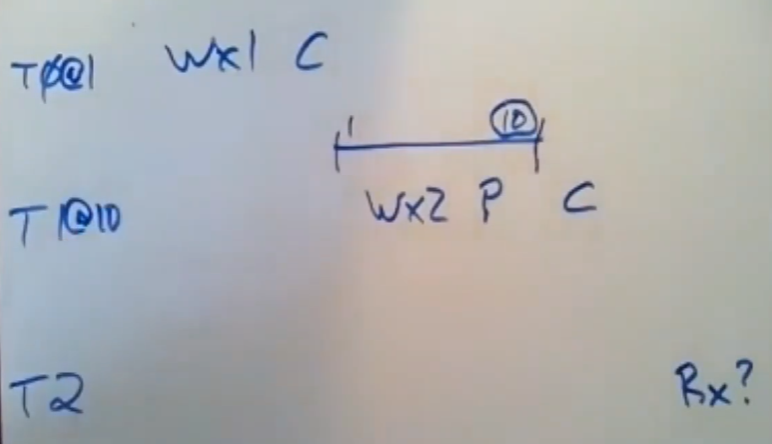 TØ@1 Wx1 C
1 10
T1@10 Wx2 P C
T2 Rx?